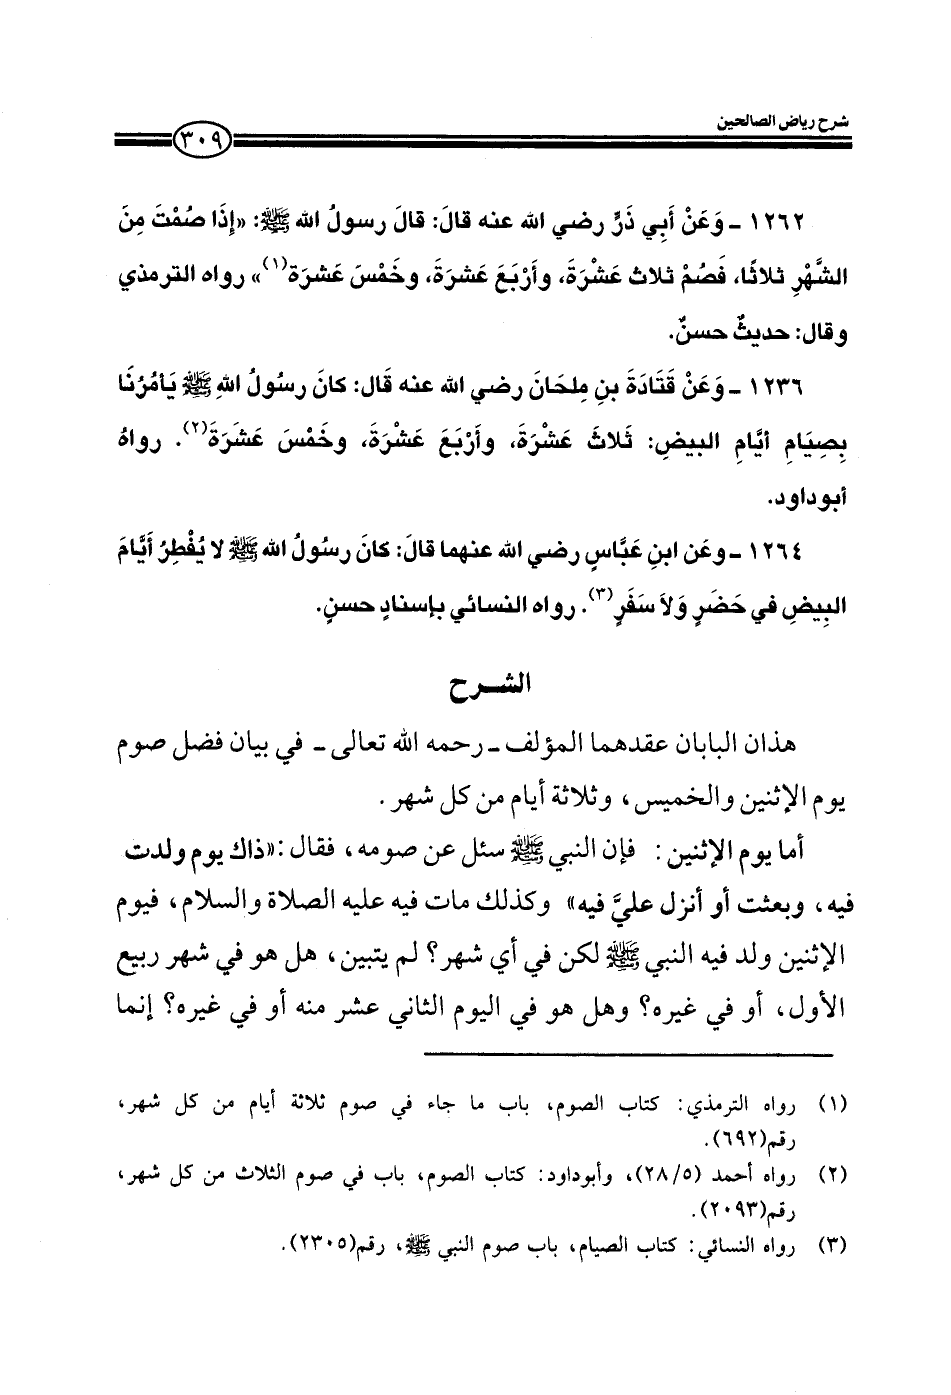 شرح رياض الصالحين
٣٠٩
١٢٦٢ ـ وَعَنْ أَبِي ذَرٍّ رضي الله عنه قالَ: قالَ رسولُ الله ﷺ: «إِذَا صُمْتَ مِنَ
الشَّهْرِ ثَلاثًا، فَصُمْ ثَلاثَ عَشْرَةَ، وأَرْبَعَ عَشْرَةَ، وخَمْسَ عَشرَةَ(١)» رواه الترمذي
وقال: حديثٌ حسنٌ.
١٢٣٦ ـ وَعَنْ قَتَادَةَ بنِ مِلحَانَ رضي الله عنه قَال: كانَ رسُولُ اللهِ ﷺ يَأمُرُنَا
بِصِيَامِ أيَّامِ البيضِ: ثَلاثَ عَشْرَةَ، وأَرْبَعَ عَشْرَةَ، وخَمْسَ عَشَرَةَ(٢). رواهُ
أبوداود.
١٢٦٤ ـ وعَن ابنِ عَبَّاسٍ رضي الله عنهما قالَ: كانَ رسُولُ الله ﷺ لا يُفْطِرُ أيَّامَ
البِيضِ في حَضَرٍ وَلاَ سَفَرٍ(٣). رواه النسائي بإسنادٍ حسنٍ.
الشـرح
هذان البابان عقدهما المؤلف ـ رحمه الله تعالى ـ في بيان فضل صوم
يوم الإثنين والخميس، وثلاثة أيام من كل شهر.
أما يوم الإثنين: فإن النبي ﷺ سئل عن صومه، فقال: «ذاك يوم ولدت
فيه، وبعثت أو أنزل عليَّ فيه» وكذلك مات فيه عليه الصلاة والسلام، فيوم
الإثنين ولد فيه النبي ﷺ لكن في أي شهر؟ لم يتبين، هل هو في شهر ربيع
الأول، أو في غيره؟ وهل هو في اليوم الثاني عشر منه أو في غيره؟ إنما
(١) رواه الترمذي: كتاب الصوم، باب ما جاء في صوم ثلاثة أيام من كل شهر،
رقم(٦٩٢).
(٢) رواه أحمد (٢٨/٥)، وأبوداود: كتاب الصوم، باب في صوم الثلاث من كل شهر،
رقم(٢٠٩٣).
(٣) رواه النسائي: كتاب الصيام، باب صوم النبي ﷺ، رقم(٢٣٠٥).